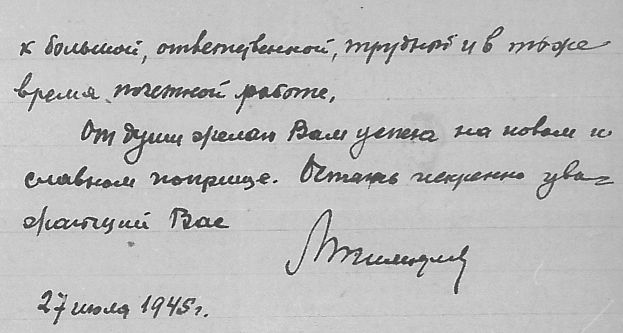 к большой, ответственной, трудной и в то же
время почетной работе.
От души желаю Вам успеха на новом и
славном поприще. Остаюсь искренно ува-
жающий Вас
27 июля 1945 г.